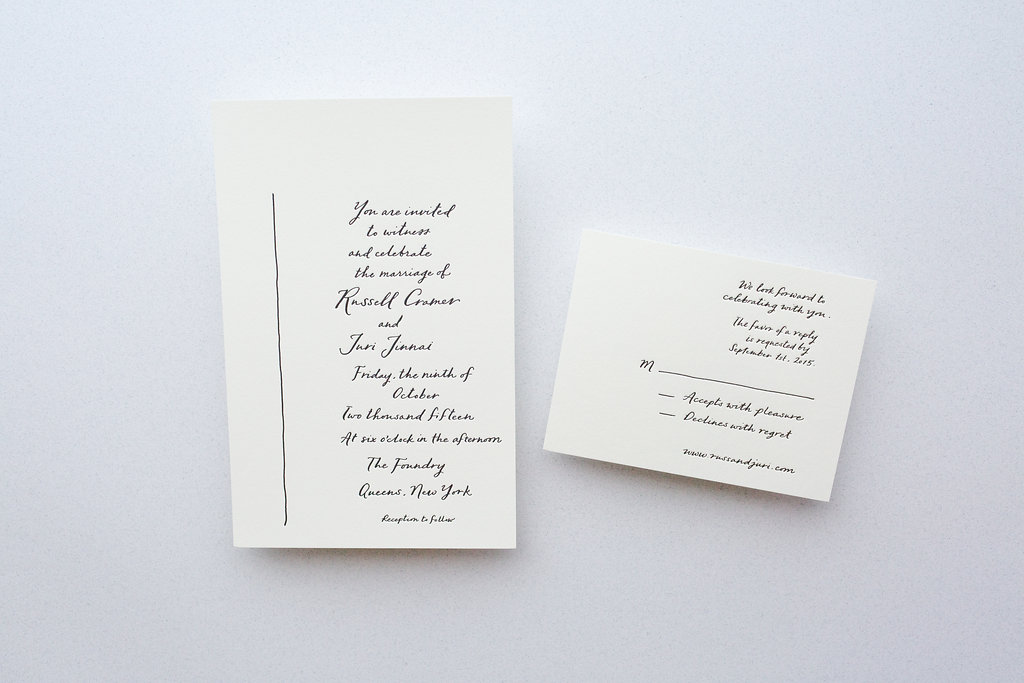 You are invited
to witness
and celebrate
the marriage of
Russell Cramer
and
Juri Jinnai
Friday, the ninth of
October
Two thousand fifteen
At six o'clock in the afternoon
The Foundry
Queens, New York
Reception to follow
We look forward to
celebrating with you.
The favor of a reply
is requested by
September 1st, 2015.
M
Accepts with pleasure
Declines with regret
www.russandjuri.com